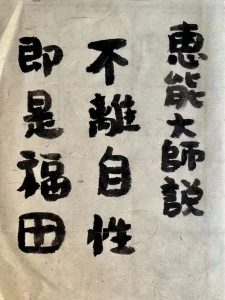 惠能大師説
不離自性
即是福田